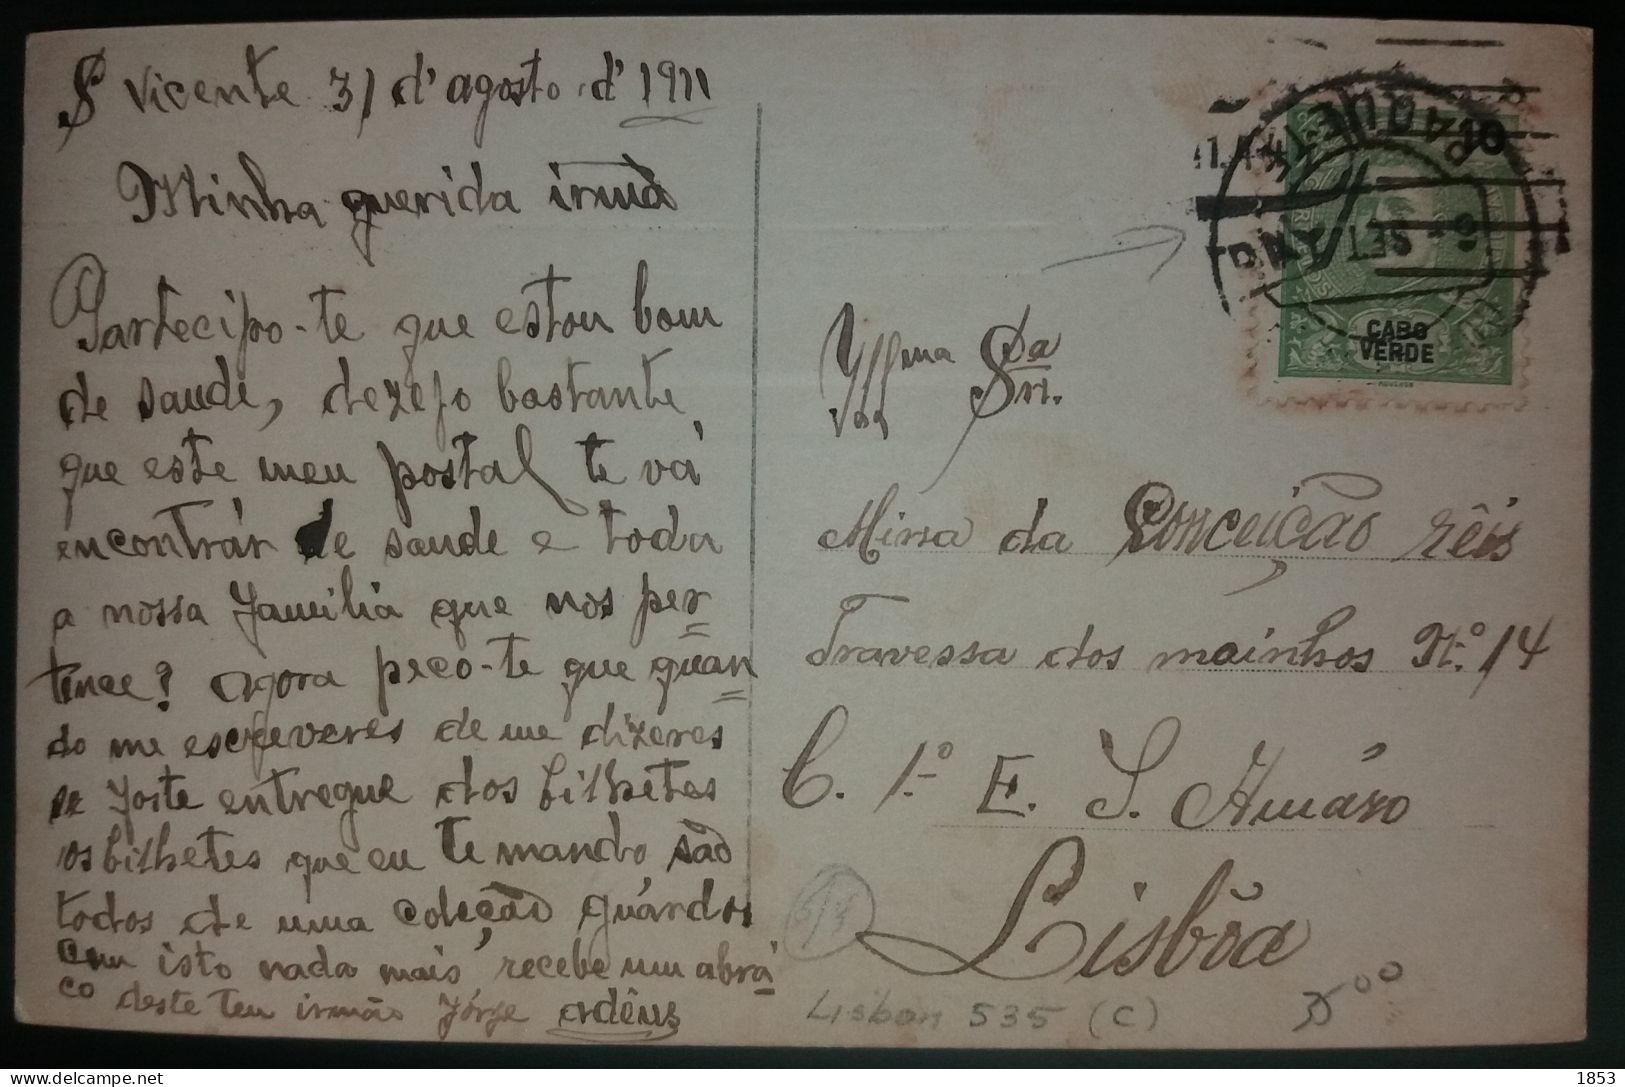 S. Vicente 31 d'agosto d'1911
Minha querida irmã
Partecipo-te que estou bom
de saude, dezejo bastante
que este meu postal te vá
encontrár de saude e toda
a nossa familia que nos per=
tence? Agora peço-te que quan=
do me escreveres de me dizeres
se foste entregue dos bilhetes
os bilhetes que eu te mando são
todos de uma coleção guárdos
com isto nada mais recebe um abrá=
ço deste teu irmão Jórge adêus
PAQUETE
6 SET
CABO
VERDE
MOUCHON
Illma Sra
Dn.
Minna da Conceição Rêis
Travessa dos moinhos N.º 14
C. 1.º E. S. Amáro
Lisbôa
Lisbon 535 (C)
1853